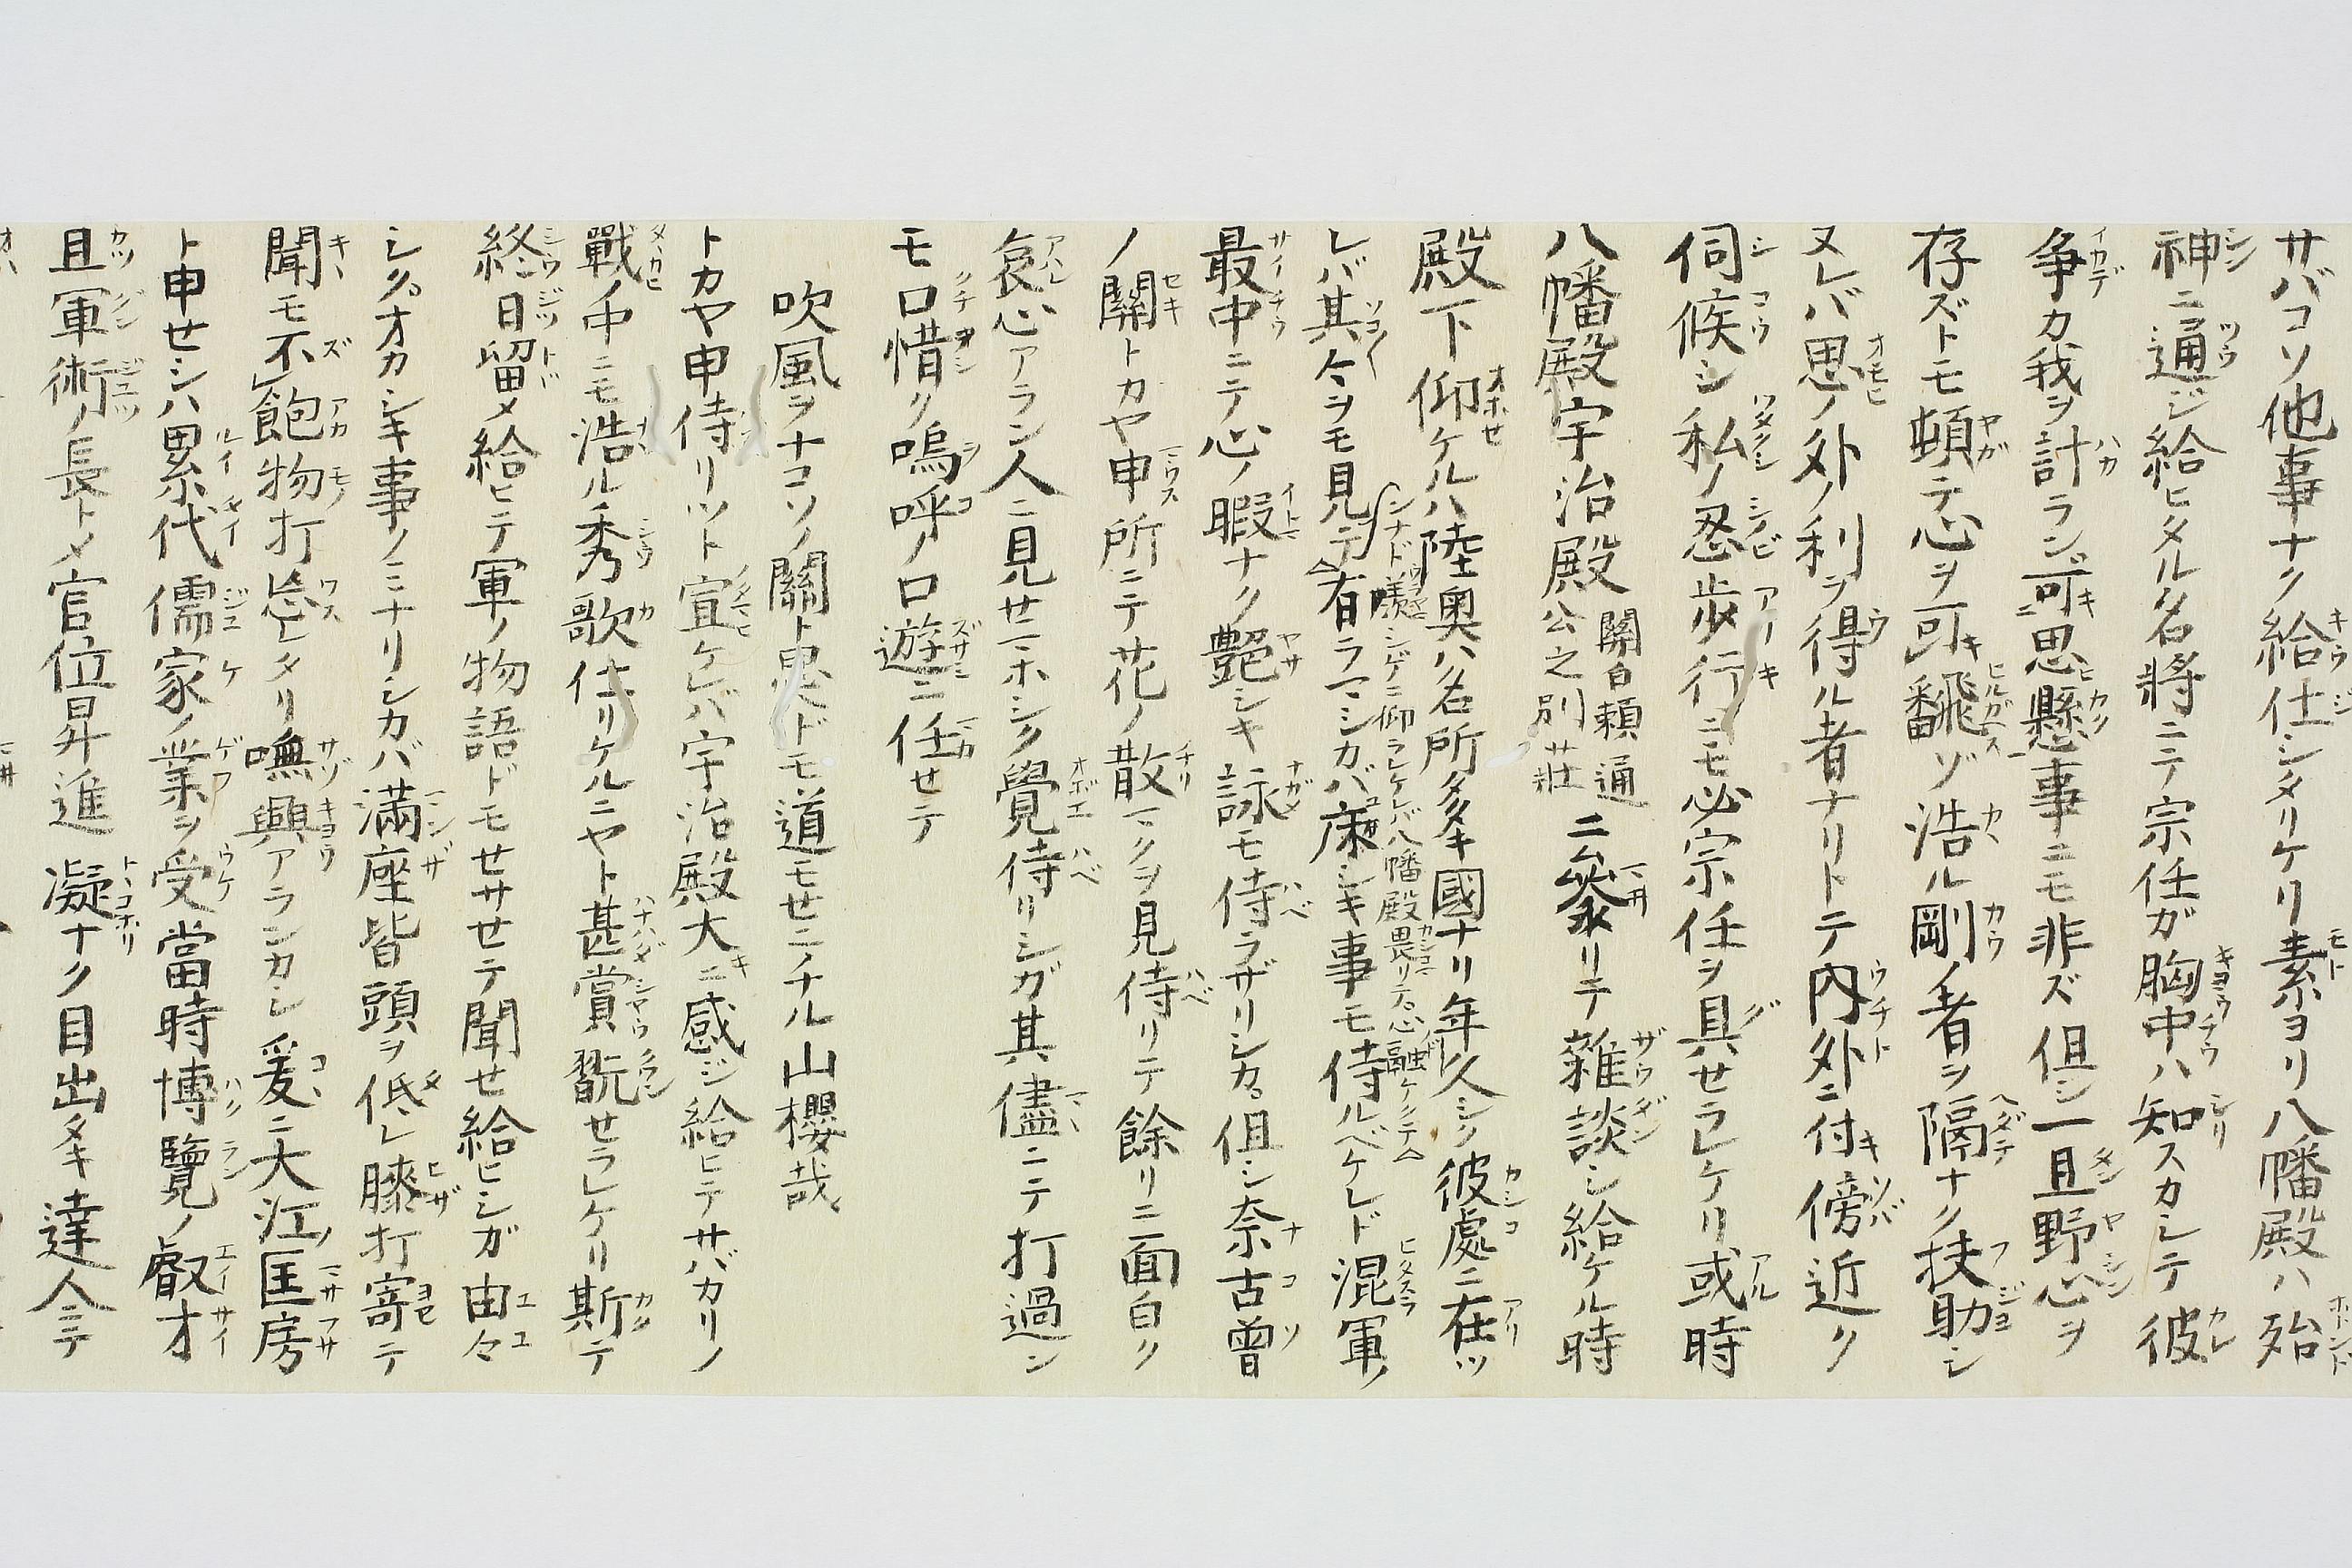 サバコソ他事ナク給仕シタリケリ素ヨリ八幡殿ハ殆
神ニ通ジ給ヒタル名將ニテ宗任ガ胸中ハ知スカシテ彼
争カ我ヲ計ラン可思懸事ニモ非ズ但シ一旦野心ヲ
存ズトモ頓テ心ヲ可翻ゾ浩ル剛ノ者ヲ隔ナク扶助シ
ヌレバ思ノ外ノ利ヲ得ル者ナリトテ内外ニ付傍近ク
伺候シ私ノ忍歩行ニモ必宗任ヲ具せラレケリ或時
八幡殿宇治殿關白頼通公之別荘ニ參リテ雑談シ給ケル時
殿下仰ケルハ陸奥ハ名所多キ國ナリ年久シク彼處ニ在ツ
レバ其々ヲモ見テ有ラマシカバ床シキ事モ侍ルベケレド混軍ノ
シナド羨シゲニ仰ラレケレバ八幡殿畏リテ心融ケクテ
最中ニテ心ノ暇ナク艶シキ詠モ侍ラザリシカ但シ奈古曾
ノ關トカヤ申所ニテ花ノ散マクヲ見侍リテ餘リニ面白ク
哀心アラン人ニ見せマホシク覺侍リシガ其儘ニテ打過ン
モ口惜ク嗚呼ノ口遊ニ任せテ
吹風ヲナコソノ關ト思ヘドモ道モせニチル山櫻哉
トカヤ申侍リツト宣ケレバ宇治殿大ニ感ジ給ヒテサバカリノ
戰ノ中ニモ浩ル秀歌仕リケルニヤト甚賞翫せラレケリ斯テ
終日留メ給ヒテ軍ノ物語ドモせサせテ聞せ給ヒシガ由々
シクオカシキ事ノミナリシカバ満座皆頭ヲ低レ膝打寄テ
聞モ不飽物打忘レタリ嘸興アランカシ爰ニ大江匡房
ト申せシハ累代儒家ノ業ヲ受當時博覽ノ叡才
且軍術ノ長トメ官位昇進凝ナク目出タキ達人ニテ